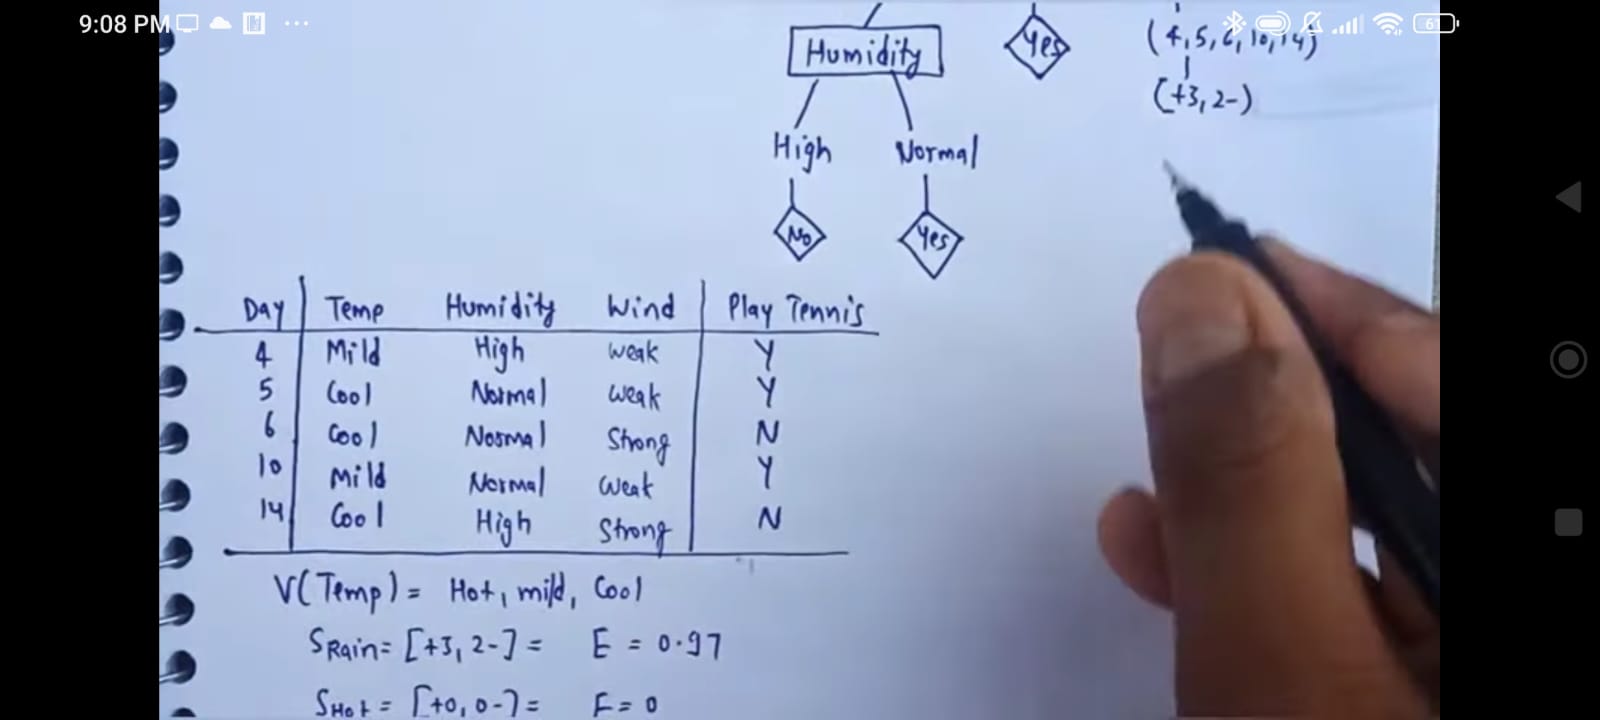 9:08 PM
61
Humidity
Yes
(4,5,6,10,14)
(+3,2-)
High Normal
No Yes
Day Temp Humidity Wind Play Tennis
4 Mild High weak Y
5 Cool Normal weak Y
6 Cool Normal Strong N
10 Mild Normal Weak Y
14 Cool High Strong N
V(Temp) = Hot, mild, Cool
SRain= [+3, 2-] = E = 0.97
SHot = [+0, 0-] = E = 0